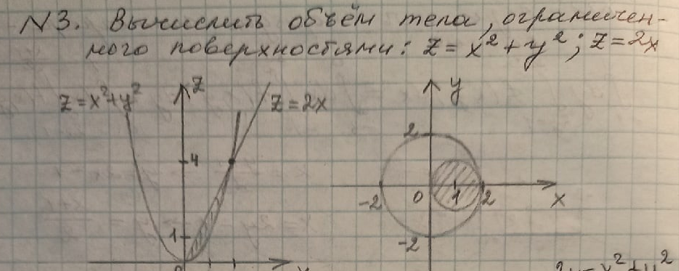 N3. Вычислить объём тела, ограничен-
ного поверхностями: z = x² + y²; z = 2x
z = x² + y²
z
z = 2x
4
1
y
2
-2
0
1
2
x
-2
2x = x² + y²